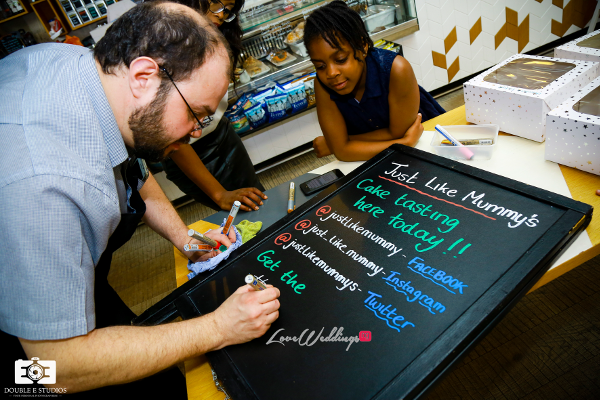 Just Like Mummy's
Cake tasting
here today!!
@justlikemummy - FACEBOOK
@just_like.mummy - Instagram
@justlikemummys - Twitter
Get the
LoveWeddings
DOUBLE E STUDIOS